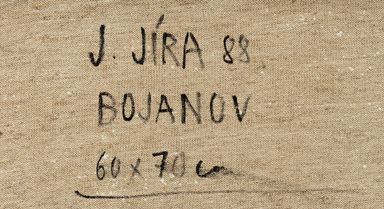 J. JÍRA 88
BOJANOV
60 x 70 cm